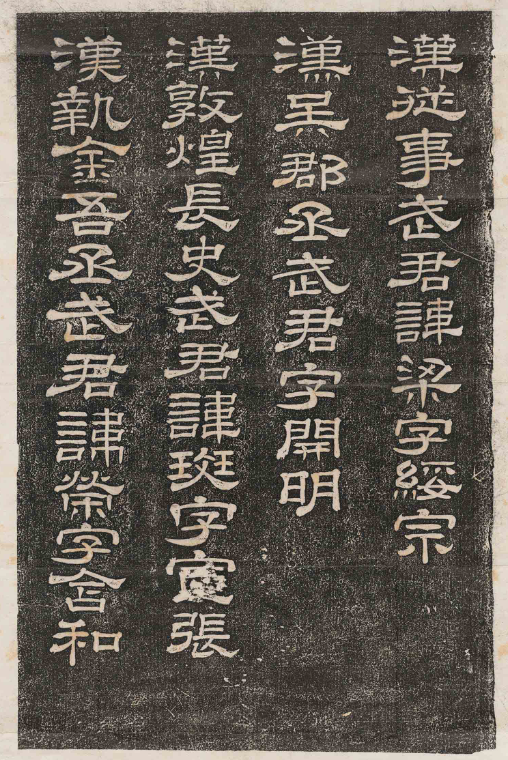 漢從事武君諱梁字綏宗
漢吳郡丞武君字開明
漢敦煌長史武君諱班字宣張
漢執金吾丞武君諱榮字含和